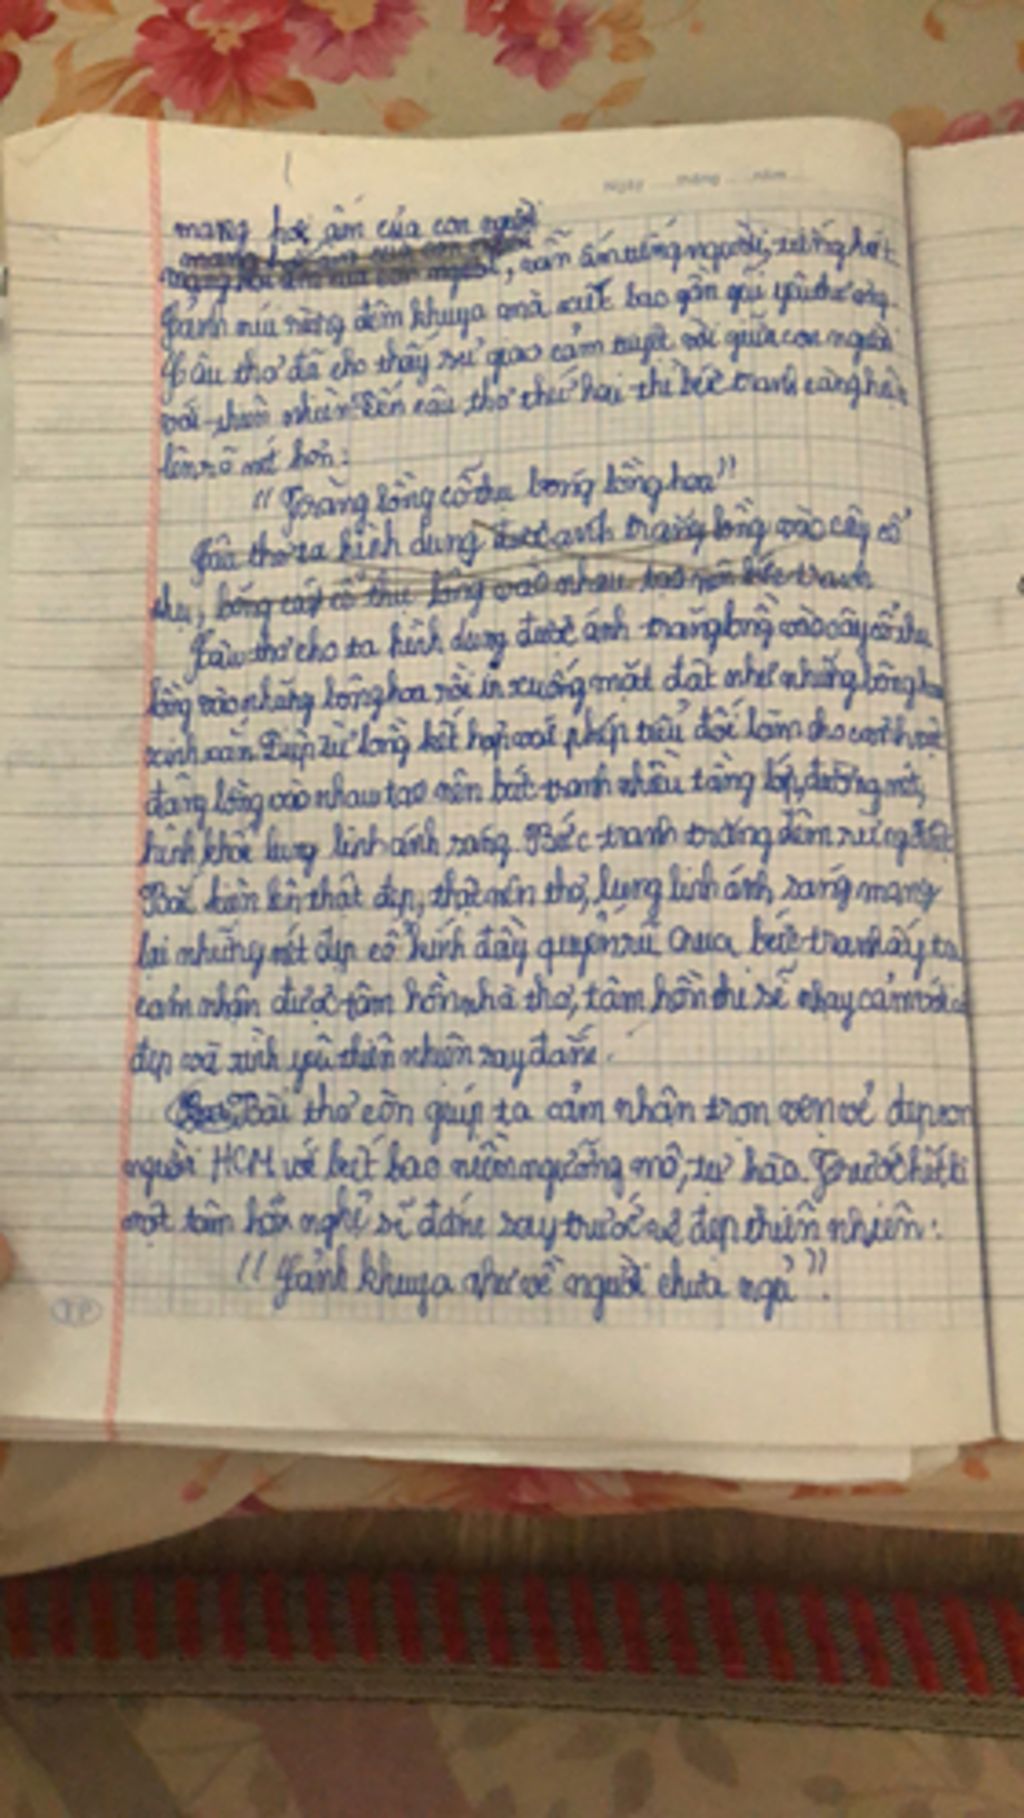 Ngày ..... tháng ..... năm .....
mang hơi ấm của con người
vẫn ấm tiếng người, tiếng hát
núi rừng đêm khuya mà xiết bao gần gũi yêu thương.
Câu thơ đã cho thấy sự giao cảm tuyệt vời giữa con người
với thiên nhiên Đến câu thơ thứ hai thì bức tranh càng hiện
lên rõ nét hơn:
"Trăng lồng cổ thụ bóng lồng hoa"
Câu thơ ta hình dung được ánh trăng lồng vào cây cổ
thụ, bóng cây cổ thụ lồng vào nhau tạo nên bức tranh
Câu thơ cho ta hình dung được ánh trăng lồng vào cây cổ thụ
lồng vào những bông hoa rồi in xuống mặt đất như những bông hoa
xinh xắn Điệp từ lồng kết hợp với phép tiểu đối làm cho cảnh vật
đang lồng vào nhau tạo nên bức tranh nhiều tầng lớp, đường nét,
hình khối lung linh ánh sáng. Bức tranh trăng đêm rừng Việt
Bắc hiện lên thật đẹp, thật nên thơ, lung linh ánh sáng mang
lại những nét đẹp cổ kính đầy quyến rũ Qua bức tranh ấy ta
cảm nhận được tâm hồn nhà thơ, tâm hồn thi sĩ nhạy cảm với cái
đẹp và tình yêu thiên nhiên say đắm.
Bài thơ còn giúp ta cảm nhận trọn vẹn vẻ đẹp con
người HCM với biết bao niềm ngưỡng mộ, tự hào. Trước hết là
một tâm hồn nghệ sĩ đắm say trước vẻ đẹp thiên nhiên:
"Cảnh khuya như vẽ người chưa ngủ".
TP